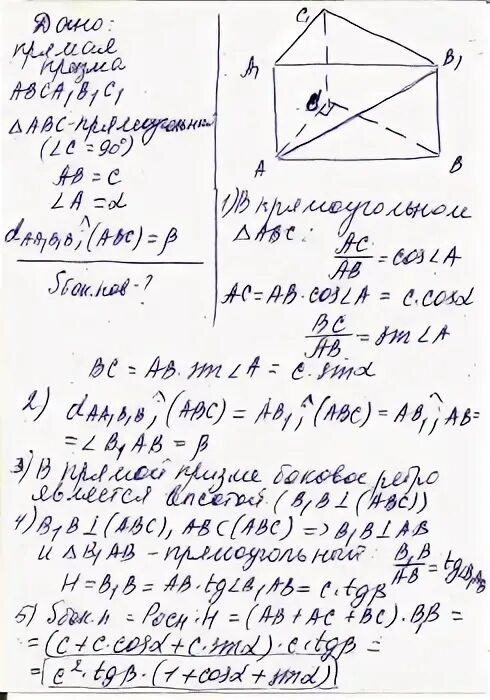 Дано:
прямая
призма
ABCA₁B₁C₁
△ABC-прямоугольный
(∠C = 90°)
AB = c
∠A = α
d AA₁B₁B;^(ABC) = β
Sбок.пов - ?
C₁
A₁
B₁
C
A
B
1) В прямоугольном
△ABC:
AC/AB = cos∠A
AC = AB·cos∠A = c·cosα
BC/AB = sin∠A
BC = AB·sin∠A = c·sinα
2) d AA₁B₁B;^(ABC) = AB₁;^(ABC) = AB₁;^AB =
= ∠B₁AB = β
3) В прямой призме боковое ребро
является высотой (B₁B⊥(ABC))
4) B₁B⊥(ABC), AB⊂(ABC) => B₁B⊥AB
и △B₁AB - прямоугольный: B₁B/AB = tg∠B₁AB
H = B₁B = AB·tg∠B₁AB = c·tgβ
5) Sбок.п = Pосн·H = (AB + AC + BC)·B₁B =
= (c + c·cosα + c·sinα)·c·tgβ =
= c²·tgβ·(1 + cosα + sinα)